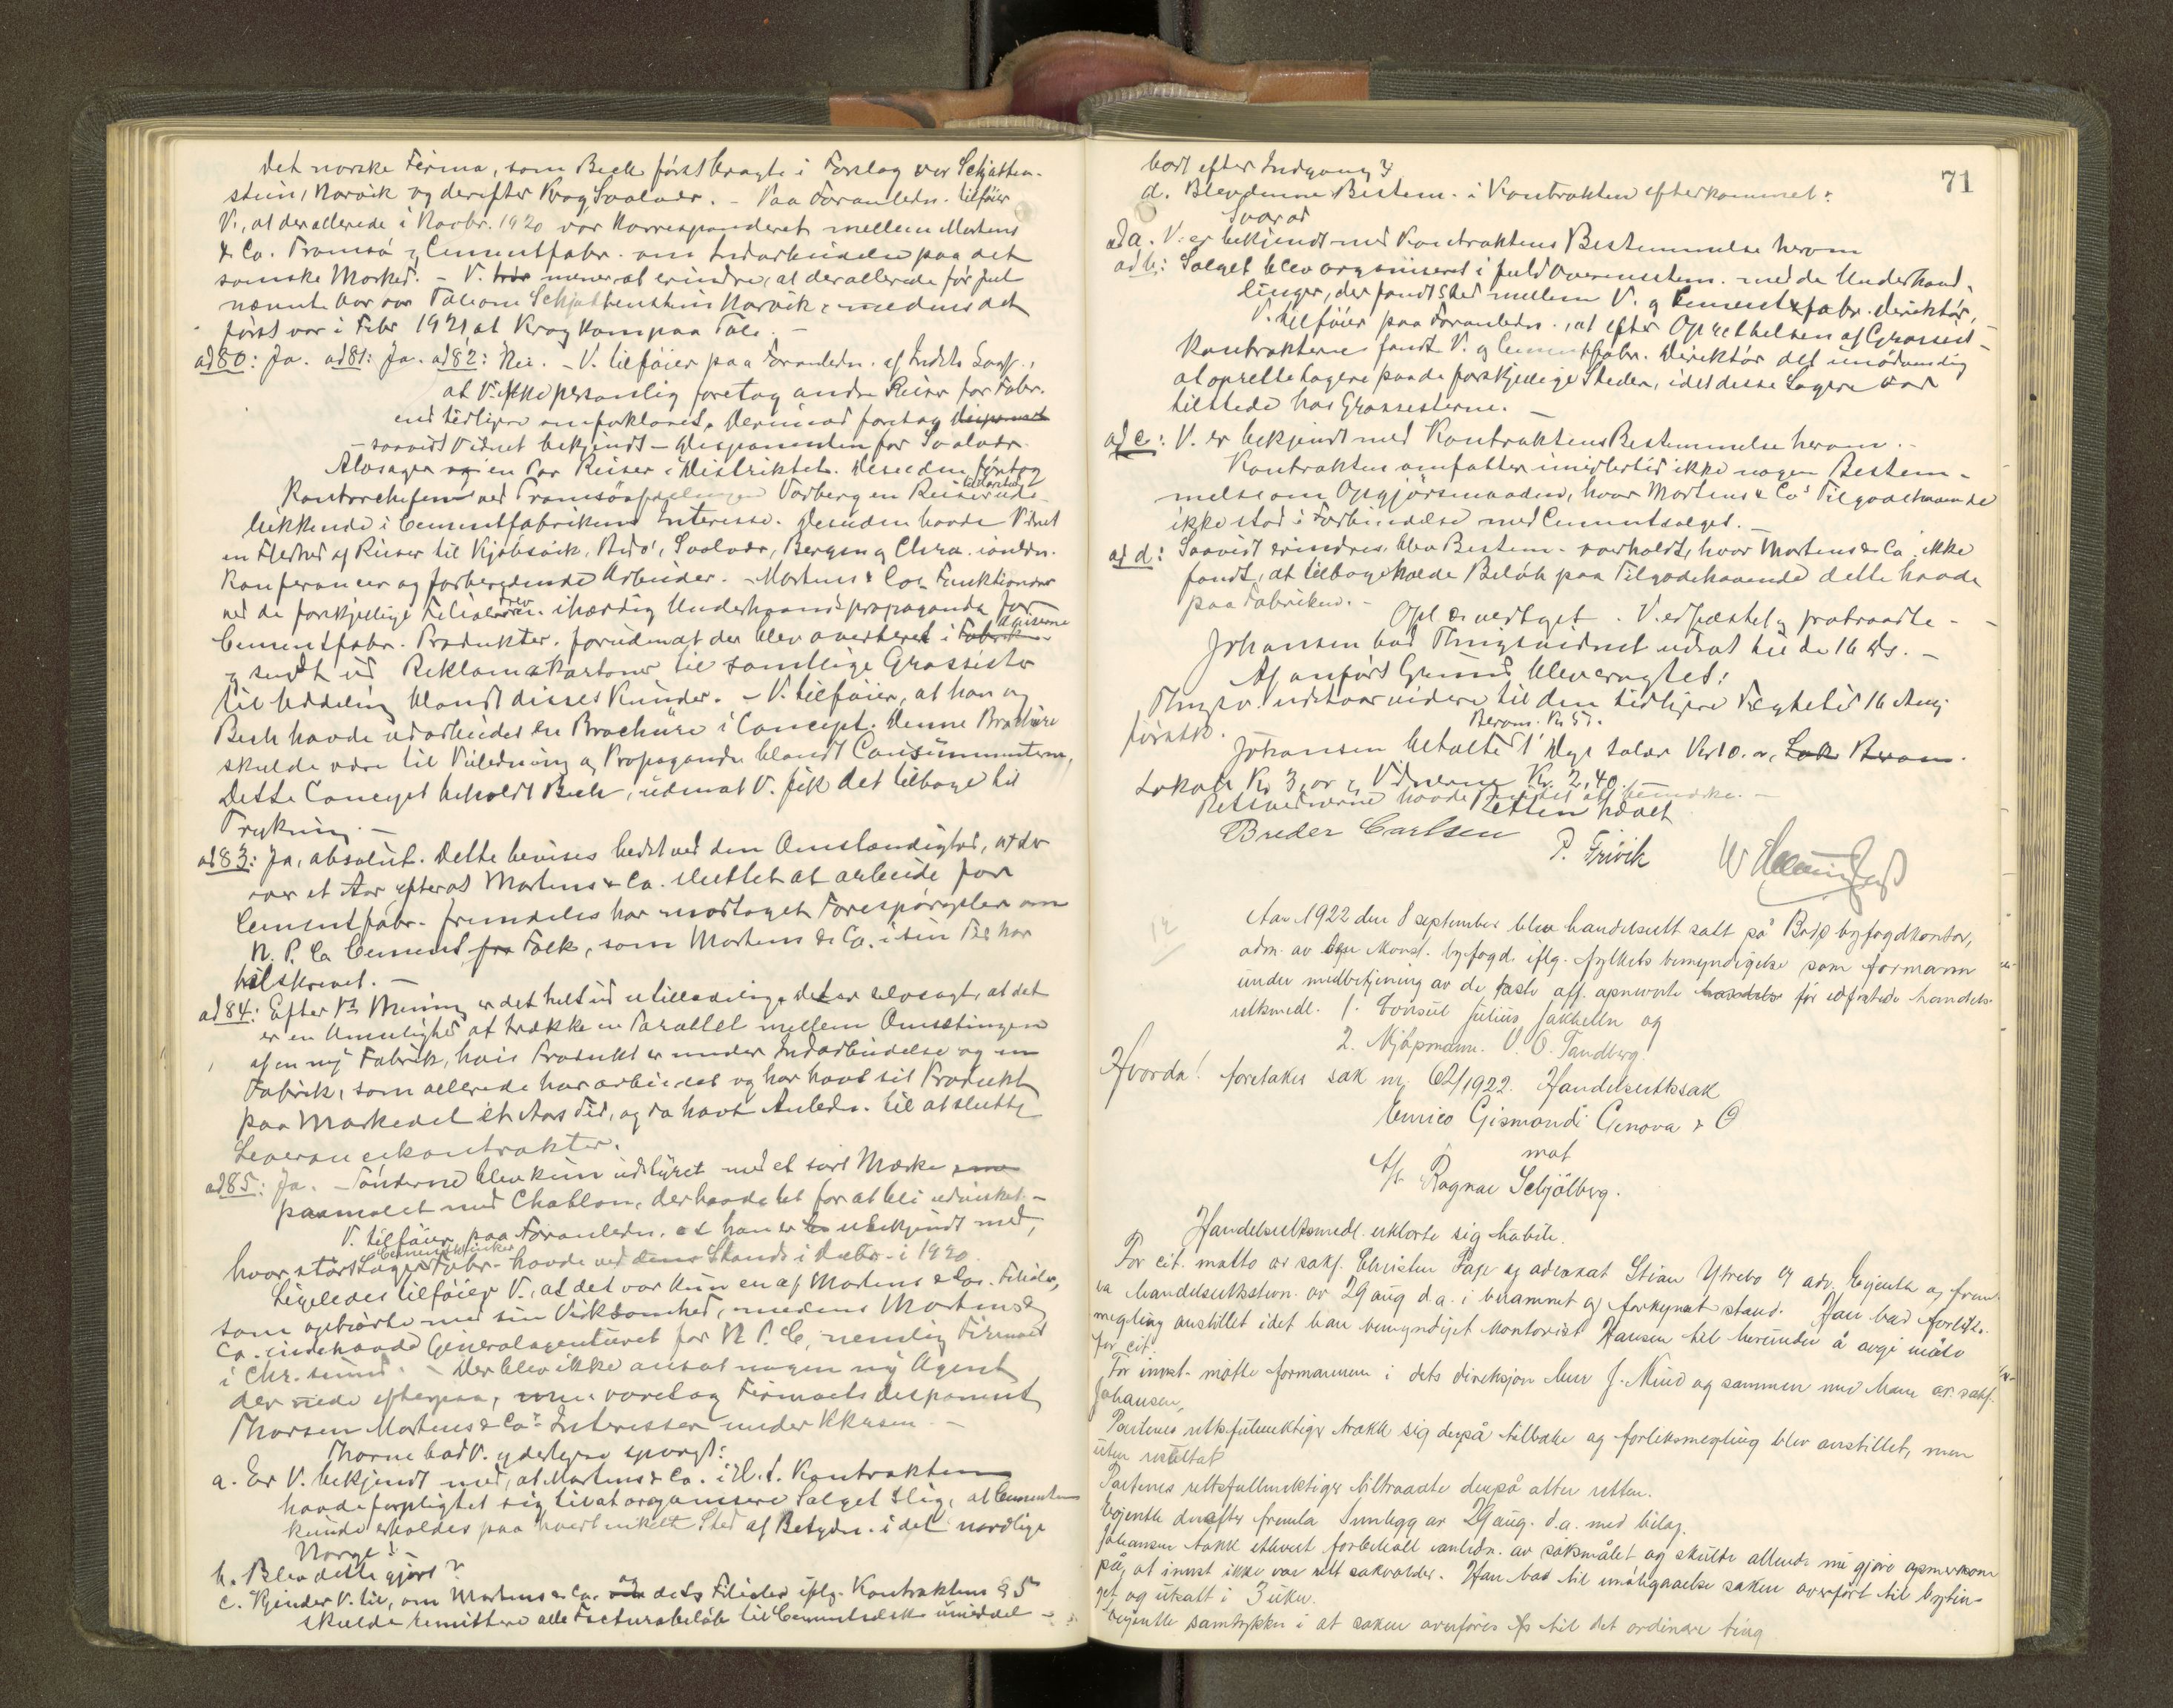 Det norske Firma, som Beck først bragte i Forslag var Schjøtten-
stein, Narvik og derefter Krog Svolvær. - Paa Foranledn. tilføier
V., at der allerede i Novbr. 1920 var Korrespanderet mellem Martens
& Co. Tromsø og Cementfabr. om Indarbeidelse paa det
samiske Marked. - V. mener at erindre, at der allerede før Jul
nævnte Aar var Tale om Schjøttenstein Narvik, medens det
først var i Febr 1921 at Krog kom paa Tale. -
ad 80: Ja. ad 81: Ja. ad 82: Nei. - V. tilføier paa Foranledn. af Indst. Sagf.,
at V. ikke personlig foretog andre Reiser for Fabr.
end tidligere omforklaret. Derimod foretog
- saavidt Vidnet bekjendt - Disponenten for Svolvær
Avlageren en Par Reiser i Distriktet. Desuden foretog
Kontorchefen ved Tromsøafdelingen Varberg en Reise
lukkende i Cementfabrikens Interesse. Desuden havde Vidnet
en Flerhed af Reiser til Kjøbsvik, Bodø, Svolvær, Bergen og Chra. i anledn.
Konferancer og forberedende Arbeider. - Martens & Cos Funktionær
ved de forskjellige Filialer drev ihærdig Underhaandspropaganda for
Cementfabr. Produkter, forudenat der blev averteret i Aviserne
og sendt ud Reklamekartoner til samtlige Grossister
til Uddeling blandt disses Kunder. - V. tilføier, at han og
Beck havde udarbeidet en Brochüre i Concept. Denne Brochüre
skulde være til Veiledning og Propaganda blandt Consumenterne,
Dette Concept beholdt Beck, uden at V. fik det tilbage til
Trykning. -
ad 83: Ja, absolut. Dette bevises bedst ved den Omstændighed, at der
over et Aar efterat Martens & Co. sluttet at arbeide for
Cementfabr. fremdeles har modtaget Forespørgsler om
N. P. C. Cement fra Folk, som Martens & Co. i sin Tid har
tilskrevet. -
ad 84: Efter Vs Mening er det helt ud utilladelig, det er selvsagt, at det
er en Umulighed at trække en Parallel mellem Omsetningen
af en ny Fabrik, hvis Produkt er under Indarbeidelse og en
Fabrik, som allerede har arbeidet og har havt sit Produkt
paa Markedet et Aars Tid, og da havt Anledn. til at slutte
Leverancekontrakter.
ad 85: Ja. - Tønderne blev kun udstyret med et sort Mærke
paamalet med Chablon, der havde let for at bli udvisket. -
V. tilføier paa Foranledn. at han er ubekjendt med,
hvor stort Lager Fabr. havde ved i Decbr. i 1920.
Ligeledes tilføier V., at det var kun en af Martens & Cos. Filialer,
som ophørte med sin Virksomhed, medens Martens &
Co. indehavde Generalagenturet for N. P. C., nemlig Firmaet
i Chr. sund. - Der blev ikke ansat nogen ny Agent
der nede efterpaa, men varetog Firmaets Disponent
Thorsen Martens & Cos Interesser under Krisen. -
Thorne bad V. yderligere spurgt:
a. Er V. bekjendt med, at Martens & Co. i H. t. Kontrakten
havde forpligtet sig til at organisere Salget slig, at Cementen
kunde erholdes paa hvert enkelt Sted af Betydn. i det nordlige
Norge? -
b. Blev dette gjort?
c. Kjender V. til, om Martens & Co. og dets Filialer iflg. Kontraktens § 5
skulde remittere alle Facturabeløb til Cementselsk umiddel -
71
bart efter Indgang?
d. Blev denne Bestem. i Kontrakten efterkommet?
Svar ad
ad a. V. er bekjendt med Kontraktens Bestemmelse herom
ad b: Salget blev organiseret i fuld Overensstem. med de Underhand-
linger, der fandt sted mellem V. og Cementfabr. direktør,
V. tilføier paa Foranledn., at efter Oprettelsen af Grossist-
Kontrakterne fandt V. og Cementfabr. Direktør det unødvendig
at oprette Lagere paa de forskjellige Steder, idet disse Lagere var
tilstede hos Grossisterne. -
ad c: V. er bekjendt med Kontraktens Bestemmelse herom. -
Kontrakten omfatter imidlertid ikke nogen Bestem-
melse om Opgjørsmaaden, hvor Martens & Cos Tilgodehavende
ikke stod i Forbindelse med Cementsalget. -
ad d: Saavidt erindres blev Bestem. overholdt, hvor Martens & Co. ikke
fandt, at tilbageholde Beløb paa Tilgodehavende dette havde
paa Fabriken. -
Opl. & vedtaget. V. edfæstet og fratraadte. -
Johansen bad Thingsvidnet udsat til de 16 ds. -
Af anført Grund blev eragtet:
Thingsv. udstaar videre til den tidligere Tægtetid 16 Aug.
førstk.
Beram. Kr 5.
Johansen betalte 1 Dags Salær Kr 10. or,
Lokale Kr 3, or og Vidnerne Kr. 2,40.
Retsvidnerne havde Intet at bemærke. -
Retten hævet
Breder Carlsen
P. Grivik
12
Aar 1922 den 8 september blev handelsrett satt på Bodø byfogdkontor,
adm. av konst. byfogd iflg. fylkets bemyndigelse som formann
under medbetjening av de faste aff. opnevnte før edfæstede handels-
rettsmedl. 1. Consul Julius Jakhelln og
2. Kjøpmann. O. O. Tandberg.
Hvorda! foretakes sak nr. 62/1922. Handelsrettssak
Enrico Gismondi Genova & O
mot
A/s Ragnar Schjölberg.
Handelsrettsmedl. erklærte sig habile.
For cit. møtte or. sakf. Christen Fage og advokat Stian Ytrebø og adv. Eyenth og frem-
la handelsrettsstevn. av 29 aug d. a. i beramnet og forkynnt stand. Han bad forliks-
megling anstillet idet han bemyndiget kontorist Hansen til herunder å avgi møte
for cit.
For innst. møtte formannen i dets direksjon herr J. Mind og sammen med ham or. sakf.
Johansen.
Partenes rettsfullmektiger trakk sig derpå tilbake og forliksmegling blev anstillet, men
uten resultat.
Partenes rettsfullmektiger tiltraadte derpå atter retten.
Eyenth derefter fremla Innlegg av 29 aug. d. a. med bilag.
Johansen tokk ethvert forbehold anledn. av søksmålet og skulde allerede nu gjøre opmerksom
på, at innst ikke var rett sakvolder. Han bad til imøtegaaelse saken overført til bytin-
get og utsatt i 3 uker.
Eyenth samtykker i at saken overføres til det ordinære ting